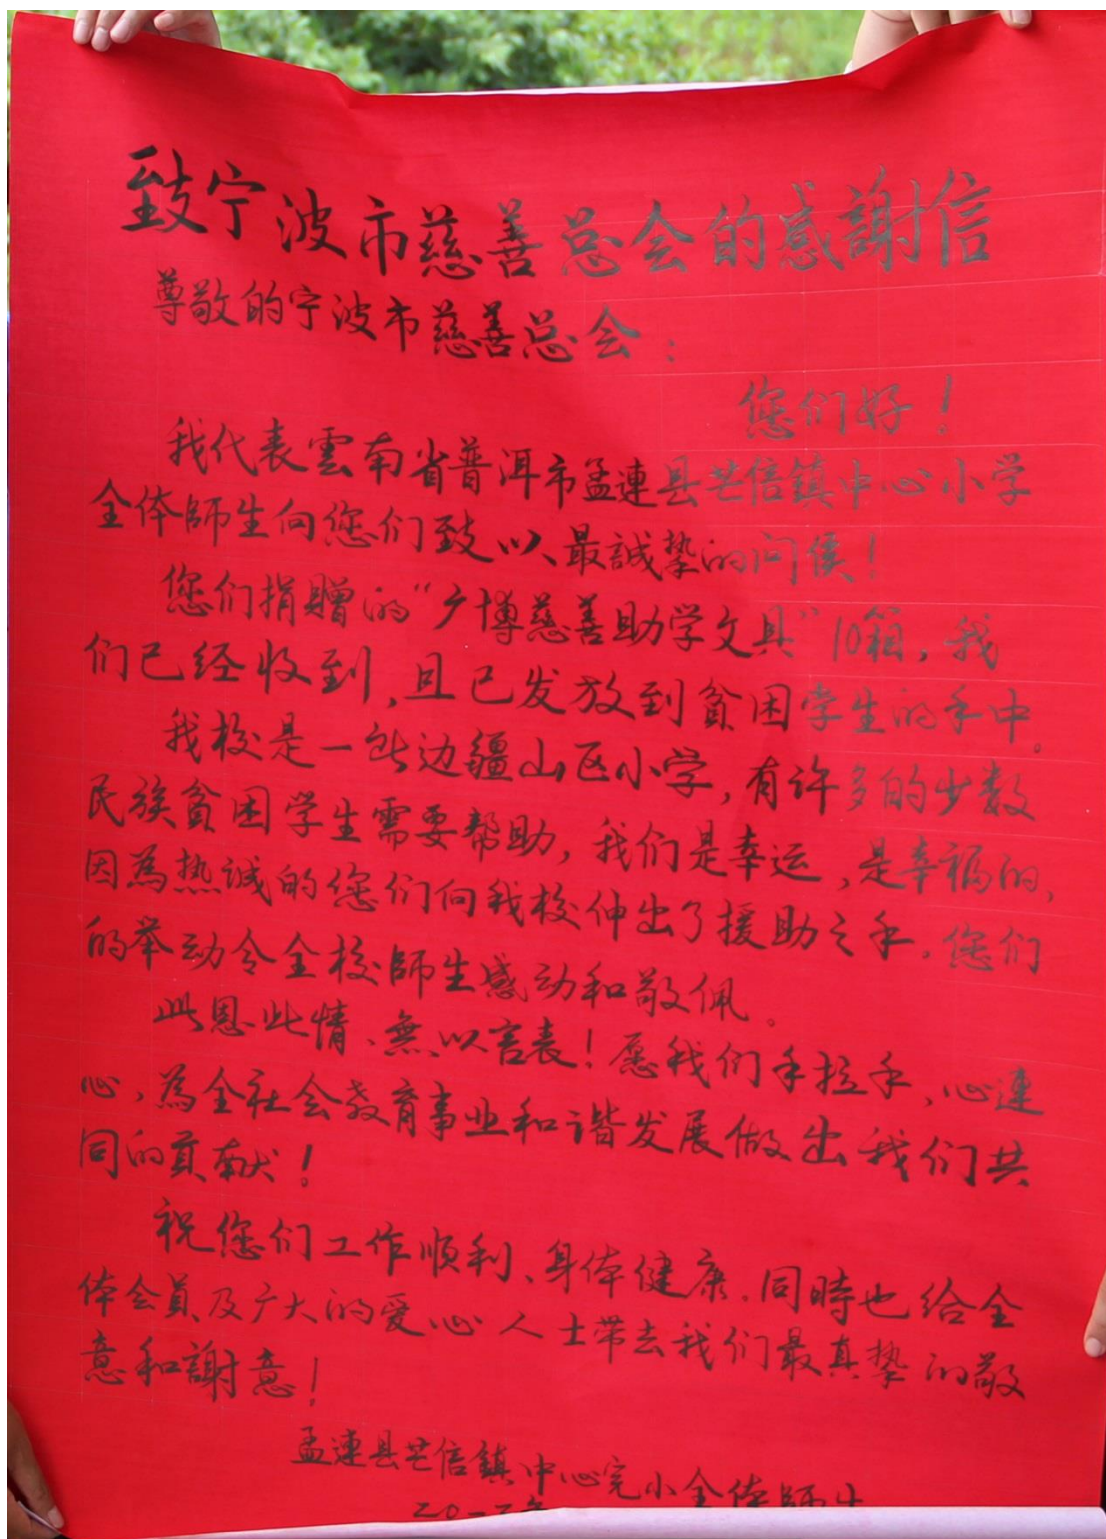 致宁波市慈善总会的感謝信
尊敬的宁波市慈善总会：
您们好！
我代表雲南省普洱市孟連县芒信鎮中心小学
全体師生向您们致以最誠挚的问候！
您们捐贈的“广博慈善助学文具”10箱，我
们已经收到，且已发放到貧困学生的手中。
我校是一所边疆山区小学，有许多的少数
民族貧困学生需要帮助，我们是幸运，是幸福的，
因為热誠的您们向我校伸出了援助之手。您们
的举动令全校師生感动和敬佩。
此恩此情、無以言表！愿我们手拉手，心連
心，為全社会教育事业和谐发展做出我们共
同的貢献！
祝您们工作顺利、身体健康。同時也给全
体会員及广大的爱心人士带去我们最真挚的敬
意和謝意！
孟連县芒信鎮中心完小全体師生